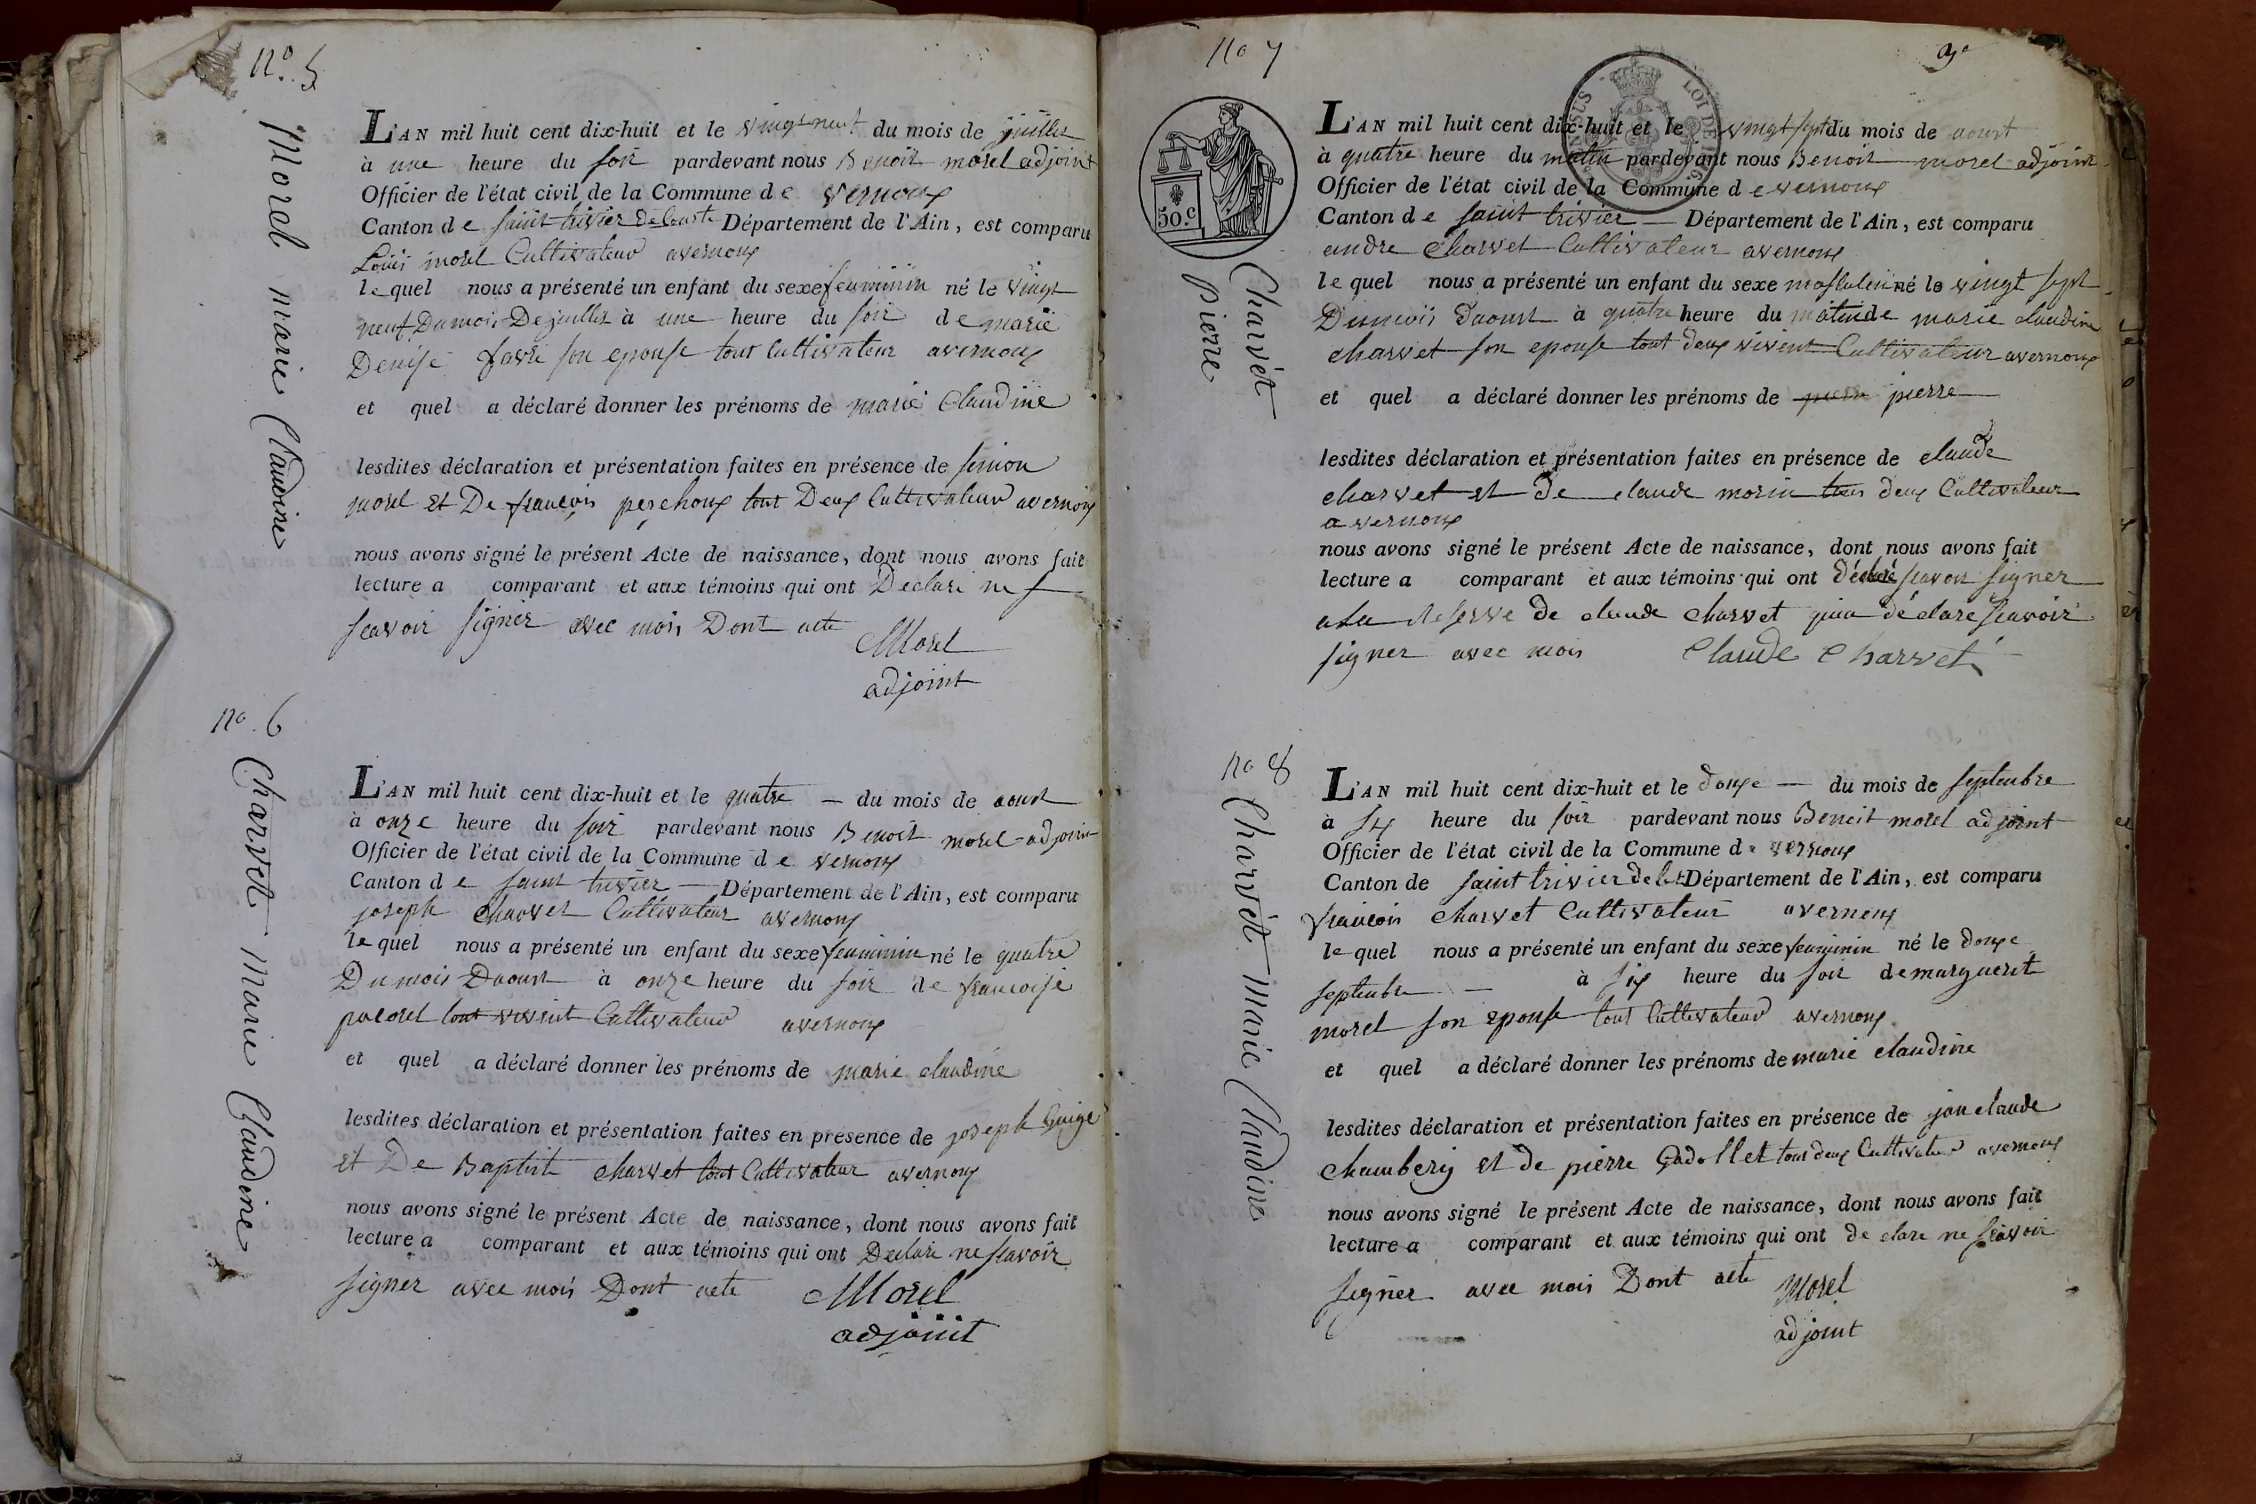 no. 5
Morel marie Claudine
L'AN mil huit cent dix-huit et le vingt neuf du mois de juillet
à une heure du soir pardevant nous Benoit morel adjoint
Officier de l'état civil de la Commune de vernoux
Canton de saint trivier de courte Département de l'Ain, est comparu
Louis morel Cultivateur avernoux
le quel nous a présenté un enfant du sexe feminin né le vingt
neuf Du mois De juillet à une heure du soir de marie
Denise favre son epouse tout Cultivateur avernoux
et quel a déclaré donner les prénoms de marie Claudine
lesdites déclaration et présentation faites en présence de simon
morel Et De françois perchoux tout Deux Cultivateur avernoux
nous avons signé le présent Acte de naissance, dont nous avons fait
lecture a comparant et aux témoins qui ont Declare ne
scavoir signer avec mois Dont acte
Morel
adjoint
no. 6
Charvet Marie Claudine
L'AN mil huit cent dix-huit et le quatre du mois de aoust
à onze heure du soir pardevant nous Benoit morel adjoint
Officier de l'état civil de la Commune de vernoux
Canton de saint trivier Département de l'Ain, est comparu
joseph charvet Cultivateur avernoux
le quel nous a présenté un enfant du sexe feminin né le quatre
Du mois Daoust à onze heure du soir de francoise
pacoret tout vivent Cultivateur avernoux
et quel a déclaré donner les prénoms de marie claudine
lesdites déclaration et présentation faites en présence de joseph Guige
et De Baptist charvet tout Cultivateur avernoux
nous avons signé le présent Acte de naissance, dont nous avons fait
lecture a comparant et aux témoins qui ont Declare ne scavoir
signer avec mois Dont acte
Morel
adjoint
no 7
50.c
LOI DE
Charvet
pierre
L'AN mil huit cent dix-huit et le vingt sept du mois de aoust
à quatre heure du matin pardevant nous Benoit morel adjoint
Officier de l'état civil de la Commune de vernoux
Canton de saint trivier Département de l'Ain, est comparu
andre charvet Cultivateur avernoux
le quel nous a présenté un enfant du sexe masculin né le vingt sept
Dumois Daoust à quatre heure du matin de marie claudine
charvet son epouse tout deux vivent Cultivateur avernoux
et quel a déclaré donner les prénoms de pierre
lesdites déclaration et présentation faites en présence de claude
charvet et de claude morin tous deux Cultivateur
avernoux
nous avons signé le présent Acte de naissance, dont nous avons fait
lecture a comparant et aux témoins qui ont déclaré scavoir signer
ala reserve de claude charvet quia déclare scavoir
signer avec mois Claude Charvet
no 8
Charvet Marie Claudine
L'AN mil huit cent dix-huit et le douze du mois de septembre
à six heure du soir pardevant nous Benoit morel adjoint
Officier de l'état civil de la Commune de vernoux
Canton de saint trivier de Département de l'Ain, est comparu
francois charvet Cultivateur avernoux
le quel nous a présenté un enfant du sexe feminin né le douze
septembre à six heure du soir de marguerit
morel son epouse tout Cultivateur avernoux
et quel a déclaré donner les prénoms de marie claudine
lesdites déclaration et présentation faites en présence de jan claude
chambery et de pierre Gadollet tous deux Cultivateur avernoux
nous avons signé le présent Acte de naissance, dont nous avons fait
lecture a comparant et aux témoins qui ont declare ne scavoir
signer avec mois Dont acte
Morel
adjoint